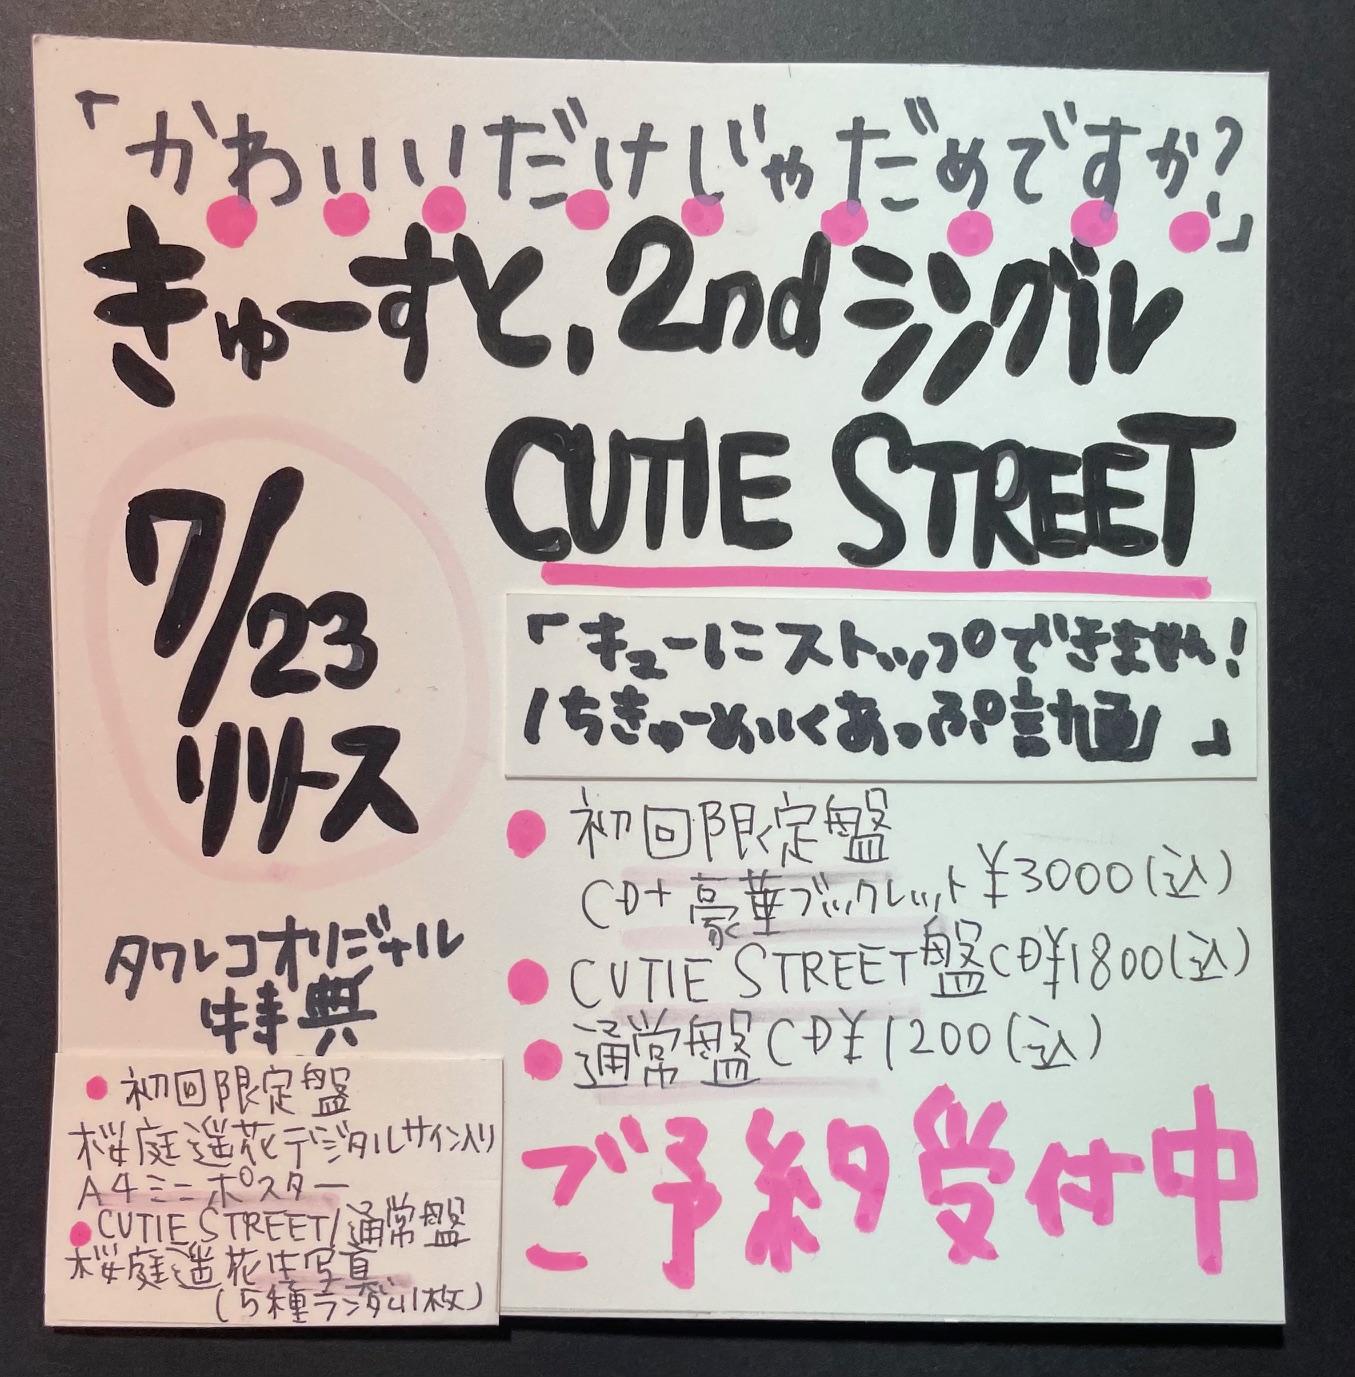 「かわいいだけじゃだめですか?」
きゅーすと、2ndシングル
CUTIE STREET
7/23
リリース
「キューにストップできません!
/ちきゅーめいくあっぷ計画」
●初回限定盤
CD+豪華ブックレット¥3000(込)
●CUTIE STREET盤CD¥1800(込)
●通常盤CD¥1200(込)
ご予約受付中
タワレコオリジナル
特典
●初回限定盤
桜庭遥花デジタルサイン入り
A4ミニポスター
●CUTIE STREET/通常盤
桜庭遥花生写真
(5種ランダム1枚)